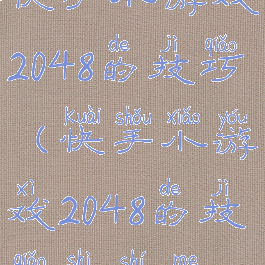 快手小游戏
de jì qiǎo
2048的技巧
kuài shǒu xiǎo yóu
(快手小游
xì de jì
戏2048的技
qiǎo shì shí me